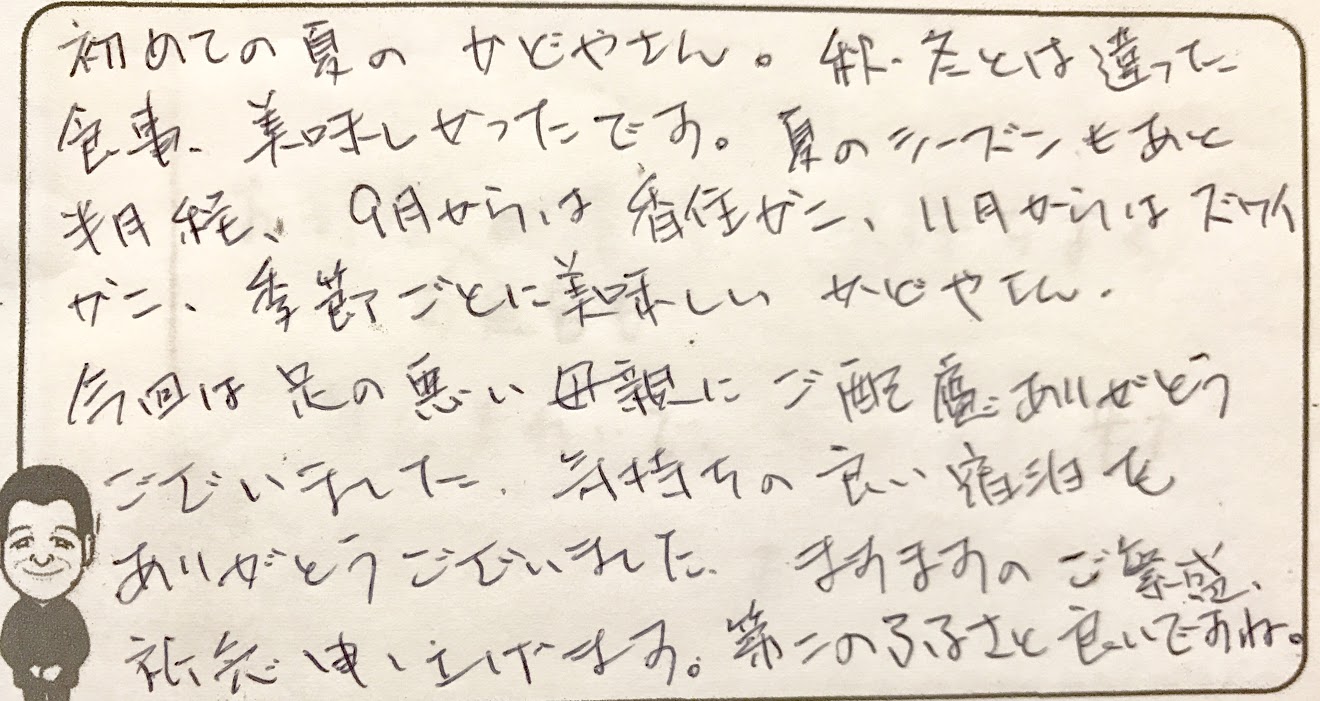 初めての夏の かどやさん。秋・冬とは違った
食事、美味しかったです。夏のシーズンもあと
半月程、9月からは香住ガニ、11月からはズワイ
ガニ、季節ごとに美味しい かどやさん.
今回は足の悪い母親にご配慮ありがとう
ございました. 気持ちの良い宿泊を
ありがとうございました. ますますのご繁盛、
祈念申し上げます。第二のふるさと良いですね。